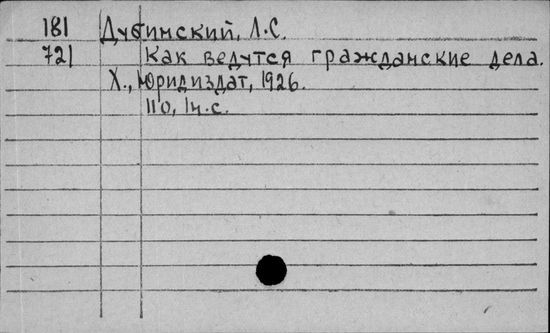 181 Дубинский, Л.С.
721 Как ведутся гражданские дела.
Х., Юридиздат, 1926.
110, 1н.с.